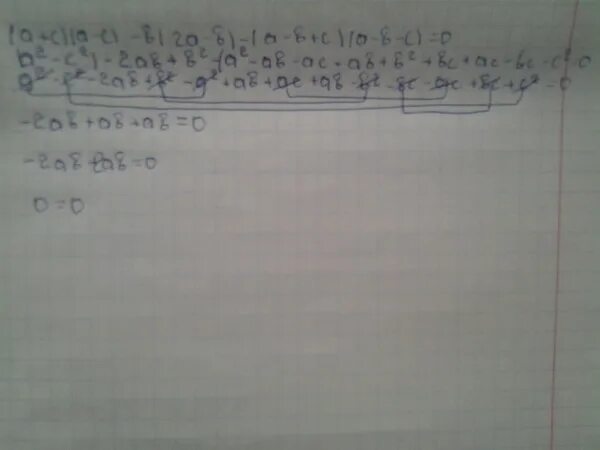 (a+c)(a-c) -b(2a-b)-(a-b+c)(a-b-c)=0
a²-c²)-2ab+b²-(a²-ab-ac+ab+b²+bc+ac-bc-c²=0
a²-c²-2ab+b²-a²+ab+ac+ab-b²-bc-ac+bc+c²=0
-2ab+ab+ab=0
-2ab+2ab=0
0=0